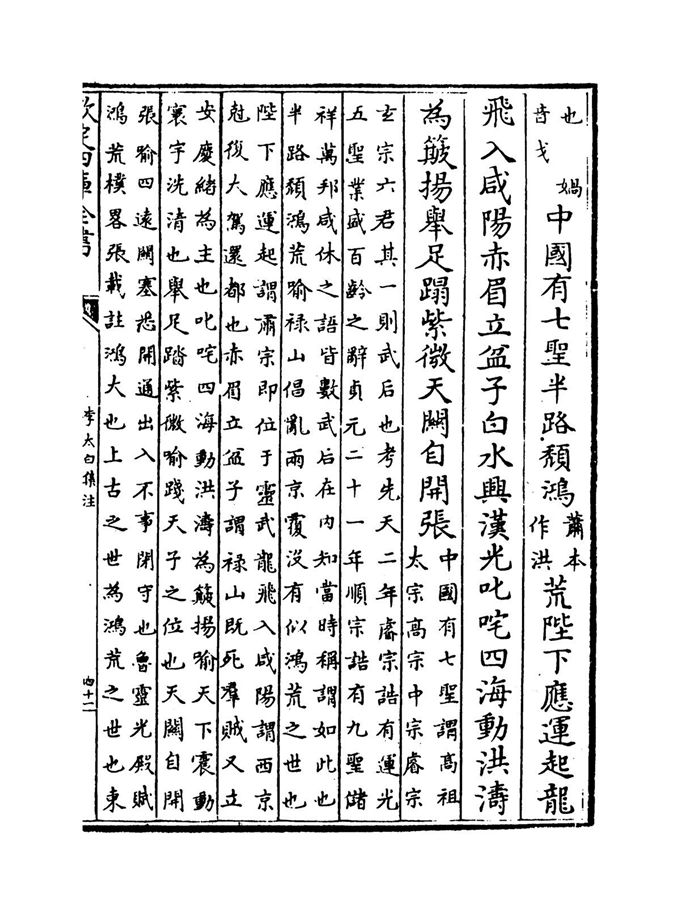 也　媧
音戈
中國有七聖半路頹鴻蕭本作洪荒陛下應運起龍
飛入咸陽赤眉立盆子白水興漢光叱咤四海動洪濤
為簸揚舉足蹋紫微天關自開張
中國有七聖謂髙祖
太宗髙宗中宗睿宗
玄宗六君其一則武后也考先天二年睿宗誥有運光
五聖業盛百齡之辭貞元二十一年順宗誥有九聖儲
祥萬邦咸休之語皆數武后在内知當時稱謂如此也
半路頹鴻荒喻禄山倡亂兩京覆沒有似鴻荒之世也
陛下應運起謂肅宗即位于靈武龍飛入咸陽謂西京
尅復大駕還都也赤眉立盆子謂禄山既死羣賊又立
安慶緒為主也叱咤四海動洪濤為簸揚喻天下震動
寰宇洗清也舉足踏紫微喻踐天子之位也天關自開
張喻四遠關塞悉開通出入不事閉守也魯靈光殿賦
鴻荒樸畧張載註鴻大也上古之世為鴻荒之世也東
欽定四庫全書
李太白集注
四十二